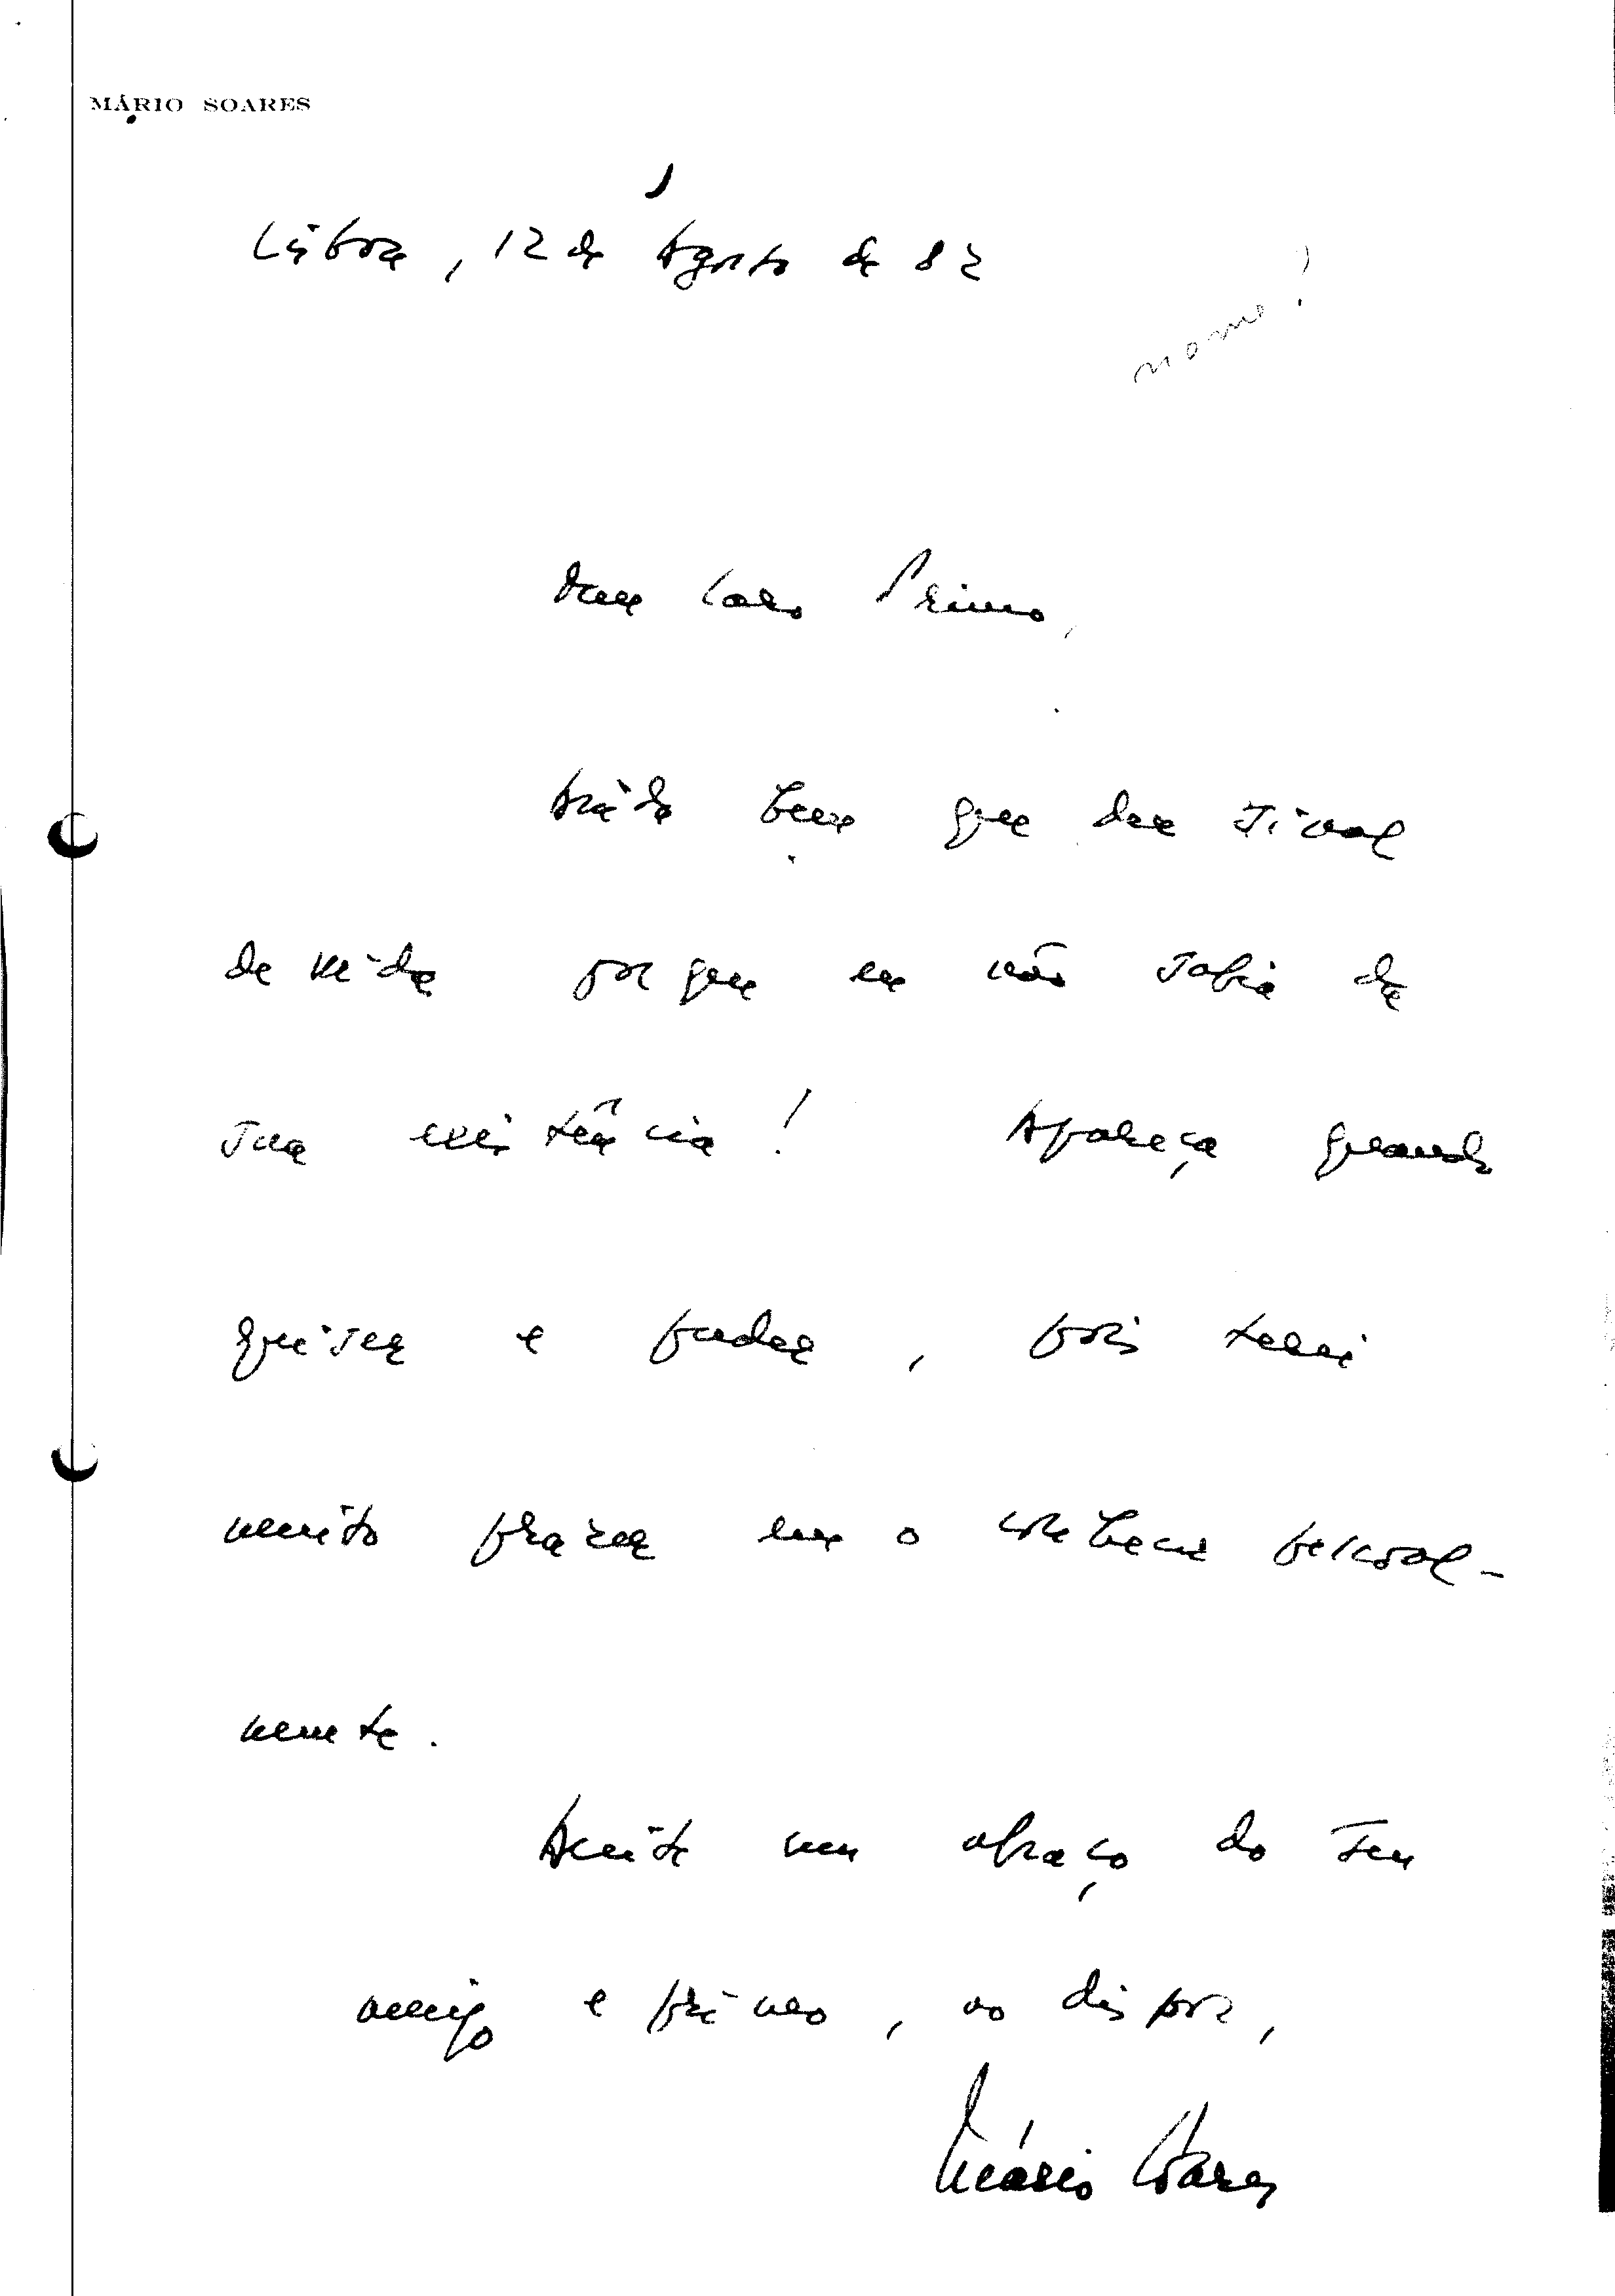 MÁRIO SOARES
Lisboa, 12 de Agosto de 82
Meu Caro Primo,
Ainda bem que deu sinal
de vida porque eu não sabia da
sua existência! Apareça quando
quiser e puder, pois terei
muito prazer em o conhecer pessoal-
mente.
Aceite um abraço do seu
amigo e primo, ao dispor,
Mário Soares